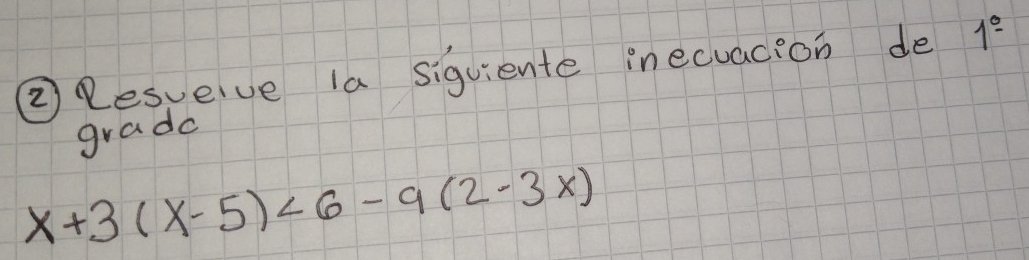 ② Resuelve la siguiente inecuación de 1º
grado
x+3(x-5)<6-9(2-3x)